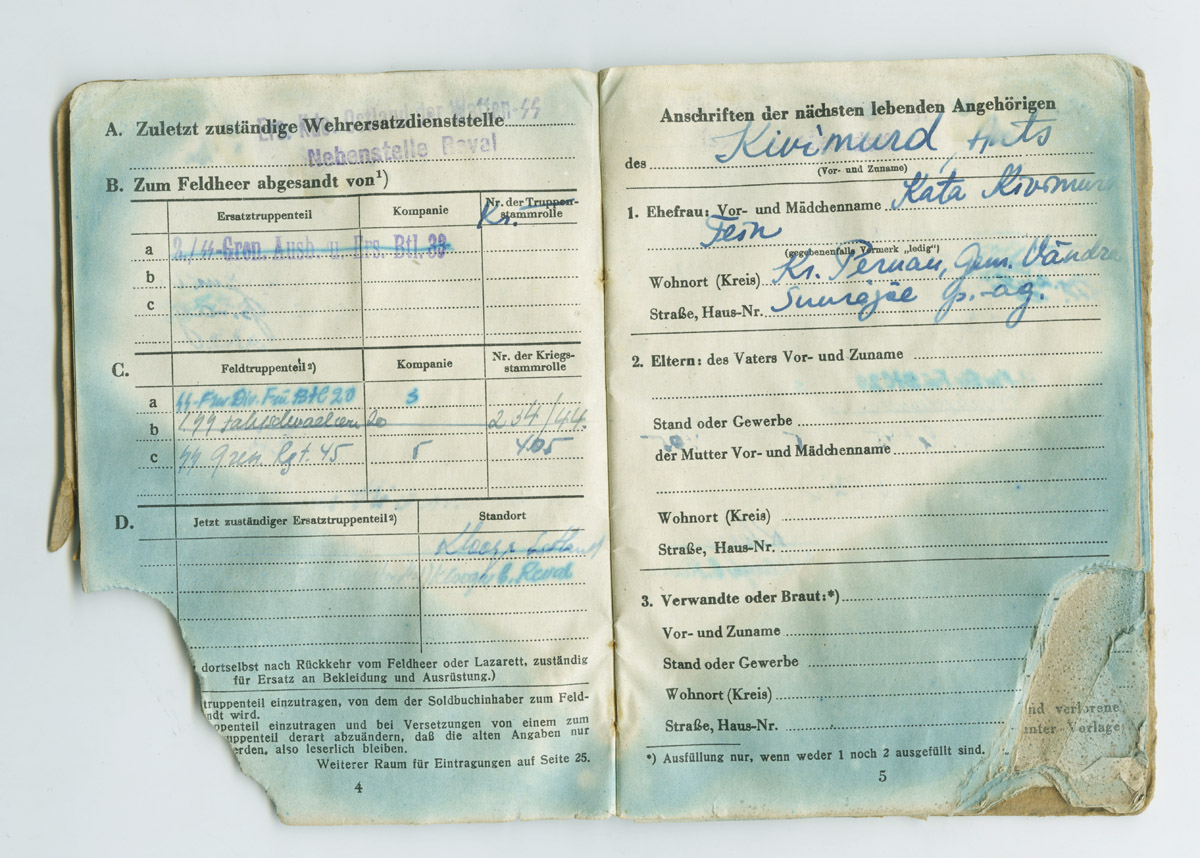 A. Zuletzt zuständige Wehrersatzdienststelle
Ers. Kdo. Ostland der Waffen-SS
Nebenstelle Reval
B. Zum Feldheer abgesandt von¹)
Ersatztruppenteil Kompanie Nr. der Truppen-
stammrolle
a 2./SS-Gren. Ausb. u. Ers. Btl. 33
b
c
C. Feldtruppenteil²) Kompanie Nr. der Kriegs-
stammrolle
a 3
b 234/44.
c SS Gren. Rgt. 45 5 405
D. Jetzt zuständiger Ersatztruppenteil²) Standort
Klooga b. Reval
dortselbst nach Rückkehr vom Feldheer oder Lazarett, zuständig
für Ersatz an Bekleidung und Ausrüstung.)
truppenteil einzutragen, von dem der Soldbuchinhaber zum Feld-
ndt wird.
ppenteil einzutragen und bei Versetzungen von einem zum
uppenteil derart abzuändern, daß die alten Angaben nur
erden, also leserlich bleiben.
Weiterer Raum für Eintragungen auf Seite 25.
4
Anschriften der nächsten lebenden Angehörigen
des Kivimurd, Ants
(Vor- und Zuname)
1. Ehefrau: Vor- und Mädchenname Kata Kivimurd
(gegebenenfalls Vermerk „ledig")
Wohnort (Kreis) Kr. Pernau, Gem. Vändra
Straße, Haus-Nr. Suurejõe
2. Eltern: des Vaters Vor- und Zuname
Stand oder Gewerbe
der Mutter Vor- und Mädchenname
Wohnort (Kreis)
Straße, Haus-Nr.
3. Verwandte oder Braut:*)
Vor- und Zuname
Stand oder Gewerbe
Wohnort (Kreis)
Straße, Haus-Nr.
*) Ausfüllung nur, wenn weder 1 noch 2 ausgefüllt sind.
nd verlorene
unter Vorlage
5